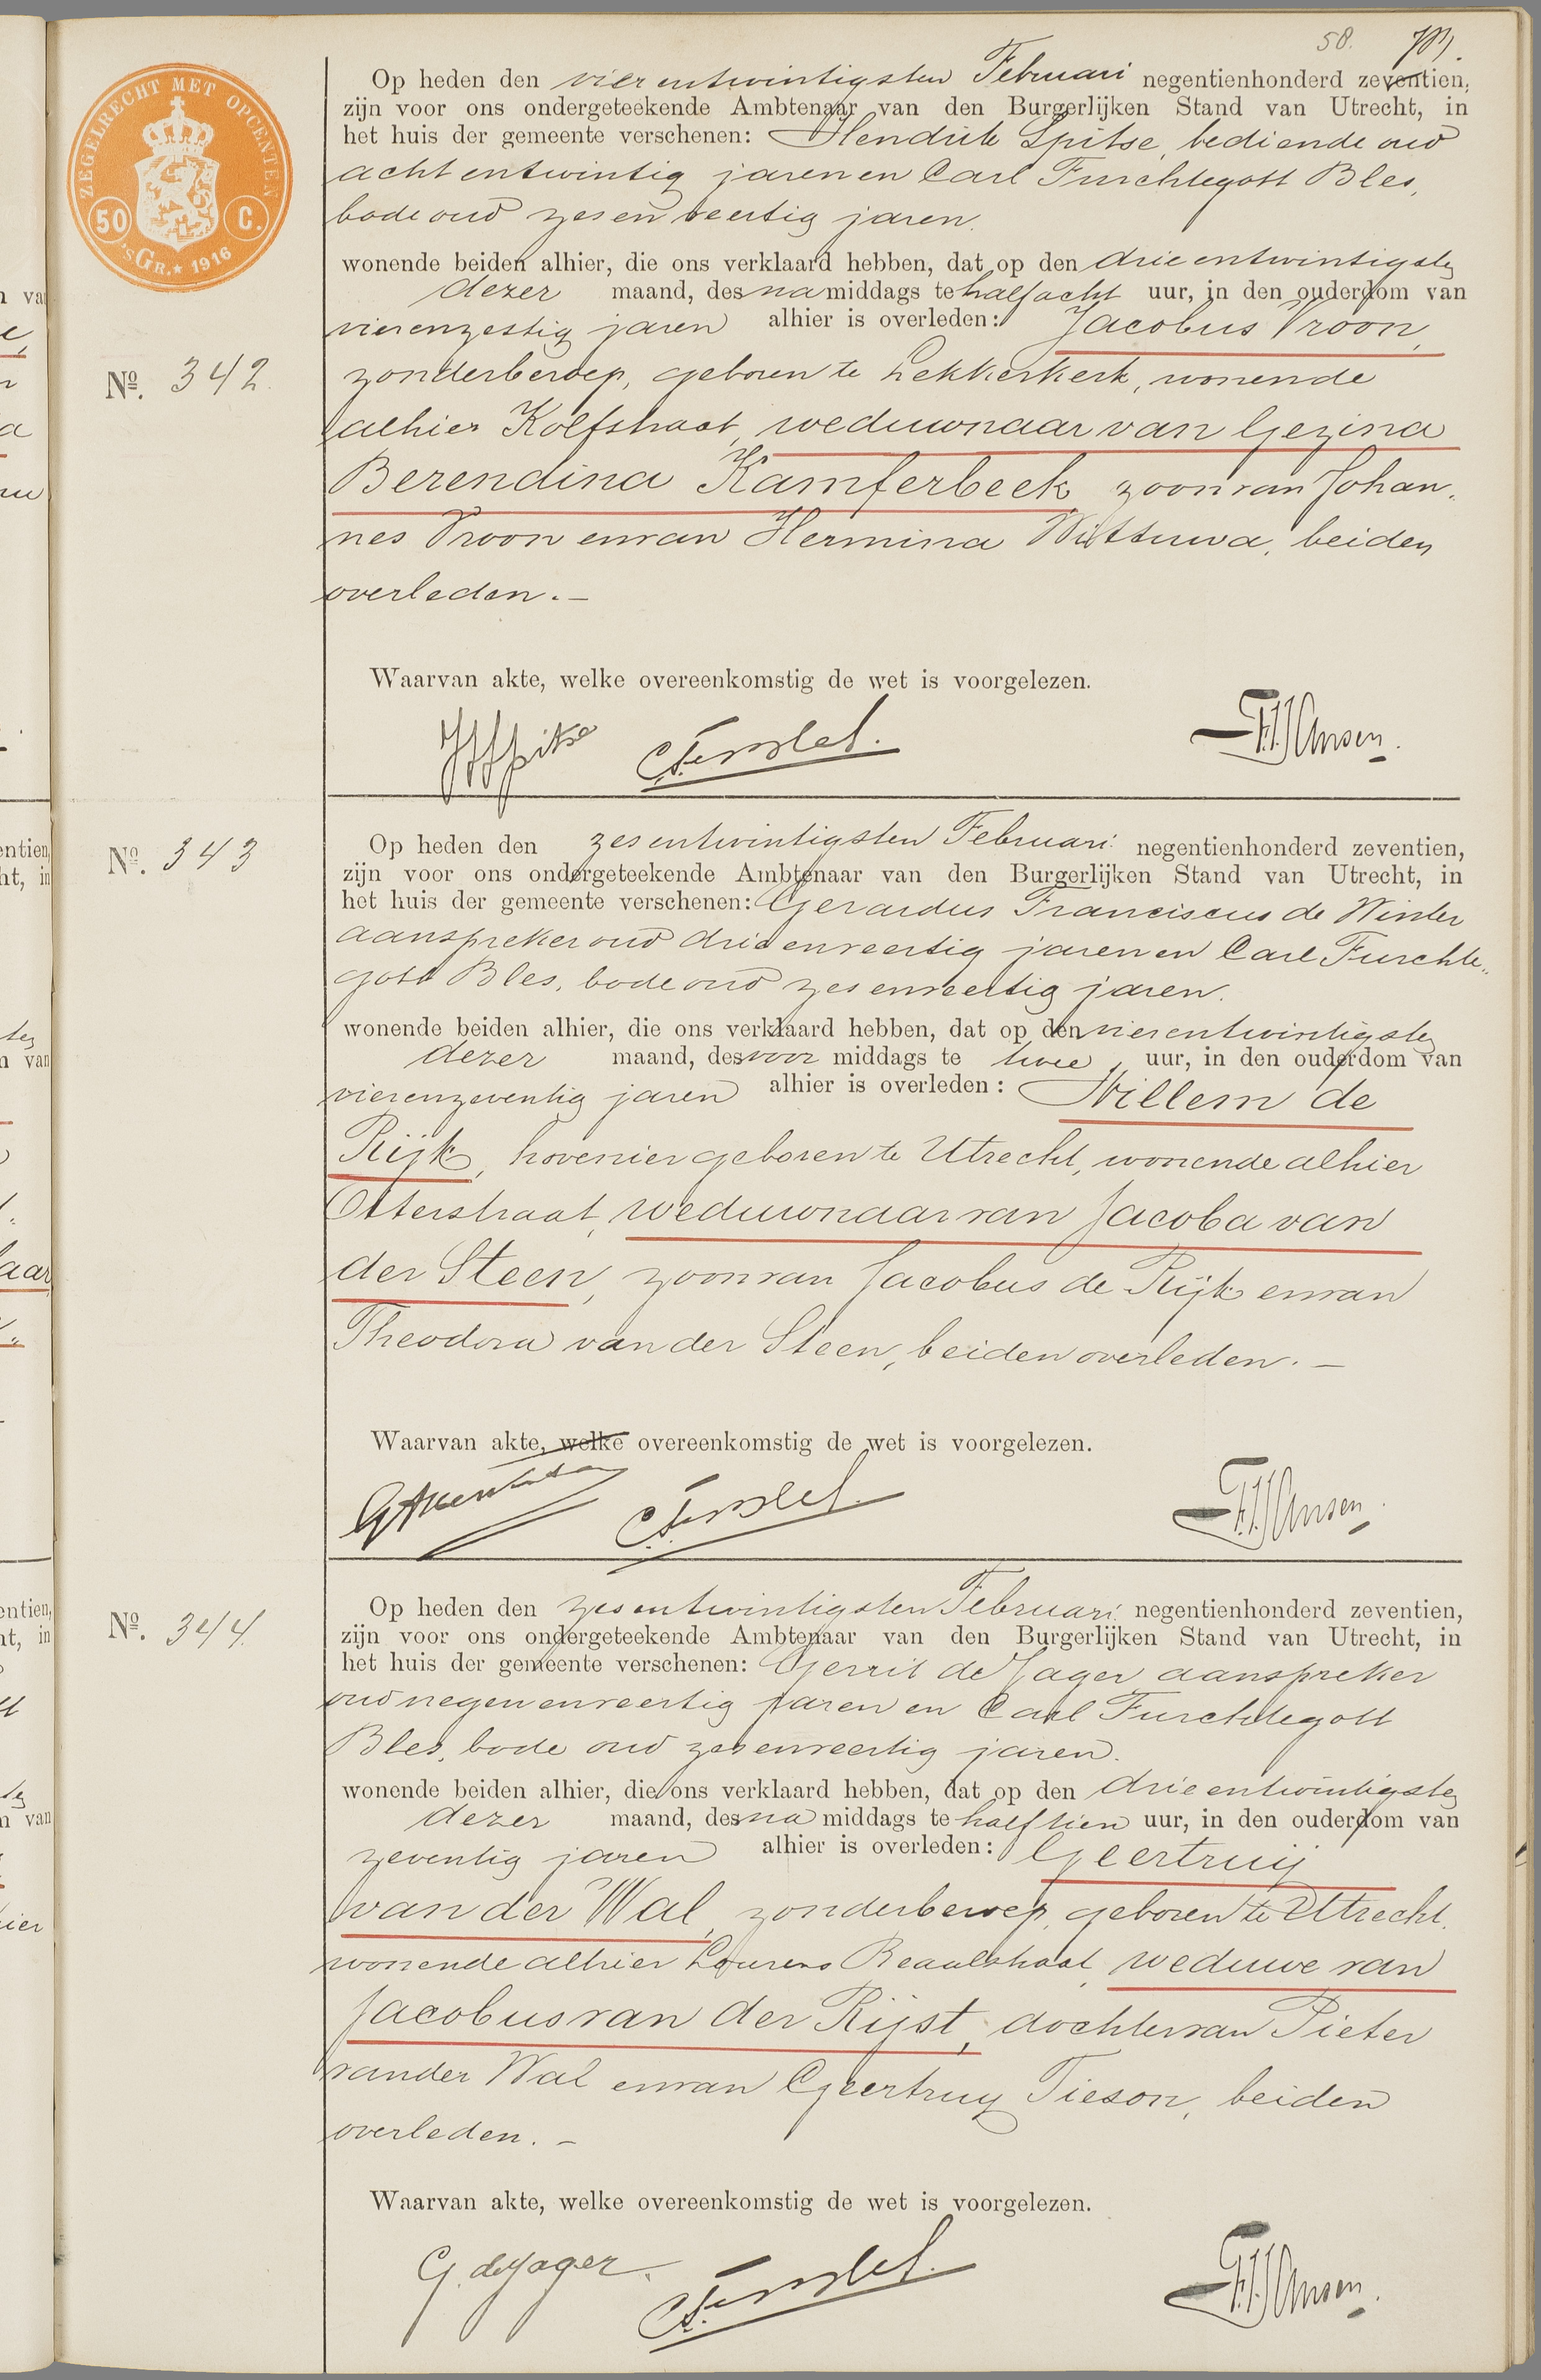 58.
ZEGELRECHT MET OPCENTEN
50 C.
'sGR. ★ 1916
Op heden den vierentwintigsten Februari negentienhonderd zeventien,
zijn voor ons ondergeteekende Ambtenaar van den Burgerlijken Stand van Utrecht, in
het huis der gemeente verschenen: Hendrik Spitse, bediende oud
achtentwintig jaren en Carl Furchtegott Bles,
bode oud zesenveertig jaren.
wonende beiden alhier, die ons verklaard hebben, dat op den drieentwintigsten
dezer maand, des namiddags te half acht uur, in den ouderdom van
vierenzestig jaren alhier is overleden: Jacobus Vroon,
No. 342.
zonder beroep, geboren te Lekkerkerk, wonende
alhier Kolfstraat, weduwnaar van Gezina
Berendina Kamferbeek, zoon van Johan-
nes Vroon en van Hermina Wittuwa, beiden
overleden. —
Waarvan akte, welke overeenkomstig de wet is voorgelezen.
HSpitse CFBles. F.J.Jansen.
No. 343
Op heden den zesentwintigsten Februari negentienhonderd zeventien,
zijn voor ons ondergeteekende Ambtenaar van den Burgerlijken Stand van Utrecht, in
het huis der gemeente verschenen: Gerardus Franciscus de Winter
aanspreker oud drieenveertig jaren en Carl Furchte„
gott Bles, bode oud zesenveertig jaren.
wonende beiden alhier, die ons verklaard hebben, dat op den vierentwintigsten
dezer maand, des voormiddags te twee, uur, in den ouderdom van
vierenzeventig jaren alhier is overleden: Willem de
Rijk, hovenier geboren te Utrecht, wonende alhier
Otterstraat, weduwnaar van Jacoba van
der Steen, zoon van Jacobus de Rijk en van
Theodora van der Steen, beiden overleden. —
Waarvan akte, welke overeenkomstig de wet is voorgelezen.
CFBles. F.J.Jansen.
No. 344.
Op heden den zesentwintigsten Februari negentienhonderd zeventien,
zijn voor ons ondergeteekende Ambtenaar van den Burgerlijken Stand van Utrecht, in
het huis der gemeente verschenen: Gerrit de Jager aanspreker
oud negenenveertig jaren en Carl Furchtegott
Bles, bode oud zesenveertig jaren.
wonende beiden alhier, die ons verklaard hebben, dat op den drieentwintigsten
dezer maand, des namiddags te half tien uur, in den ouderdom van
zeventig jaren alhier is overleden: Geertruij
van der Wal, zonder beroep, geboren te Utrecht,
wonende alhier Lourens Reaalstraat, weduwe van
Jacobus van der Rijst, dochter van Pieter
van der Wal en van Geertruy Tieson, beiden
overleden. —
Waarvan akte, welke overeenkomstig de wet is voorgelezen.
G. de Jager. CFBles. F.J.Jansen.